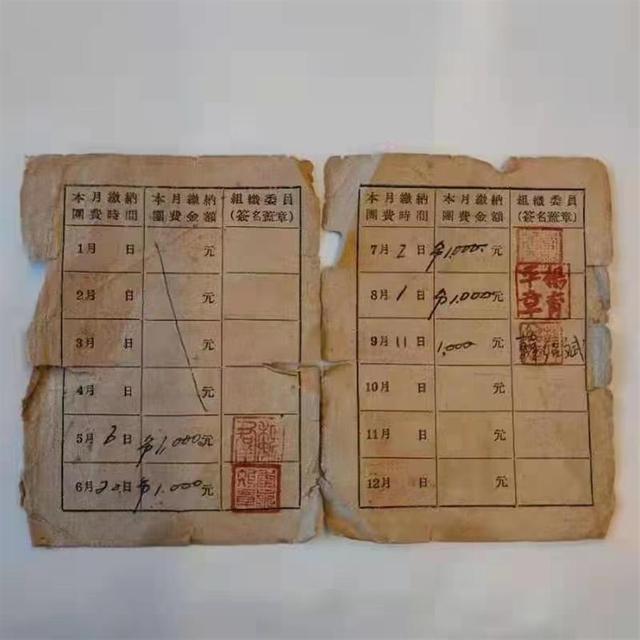 本月繳納 本月繳納 組織委員
團費時間 團費金額 (簽名蓋章)
1月 日 元
2月 日 元
3月 日 元
4月 日 元
5月 3日 1,000元
6月 20日 1,000元
本月繳納 本月繳納 組織委員
團費時間 團費金額 (簽名蓋章)
7月 2日 1,000元
8月 1日 1,000元 楊育平章
9月 11日 1,000元
10月 日 元
11月 日 元
12月 日 元